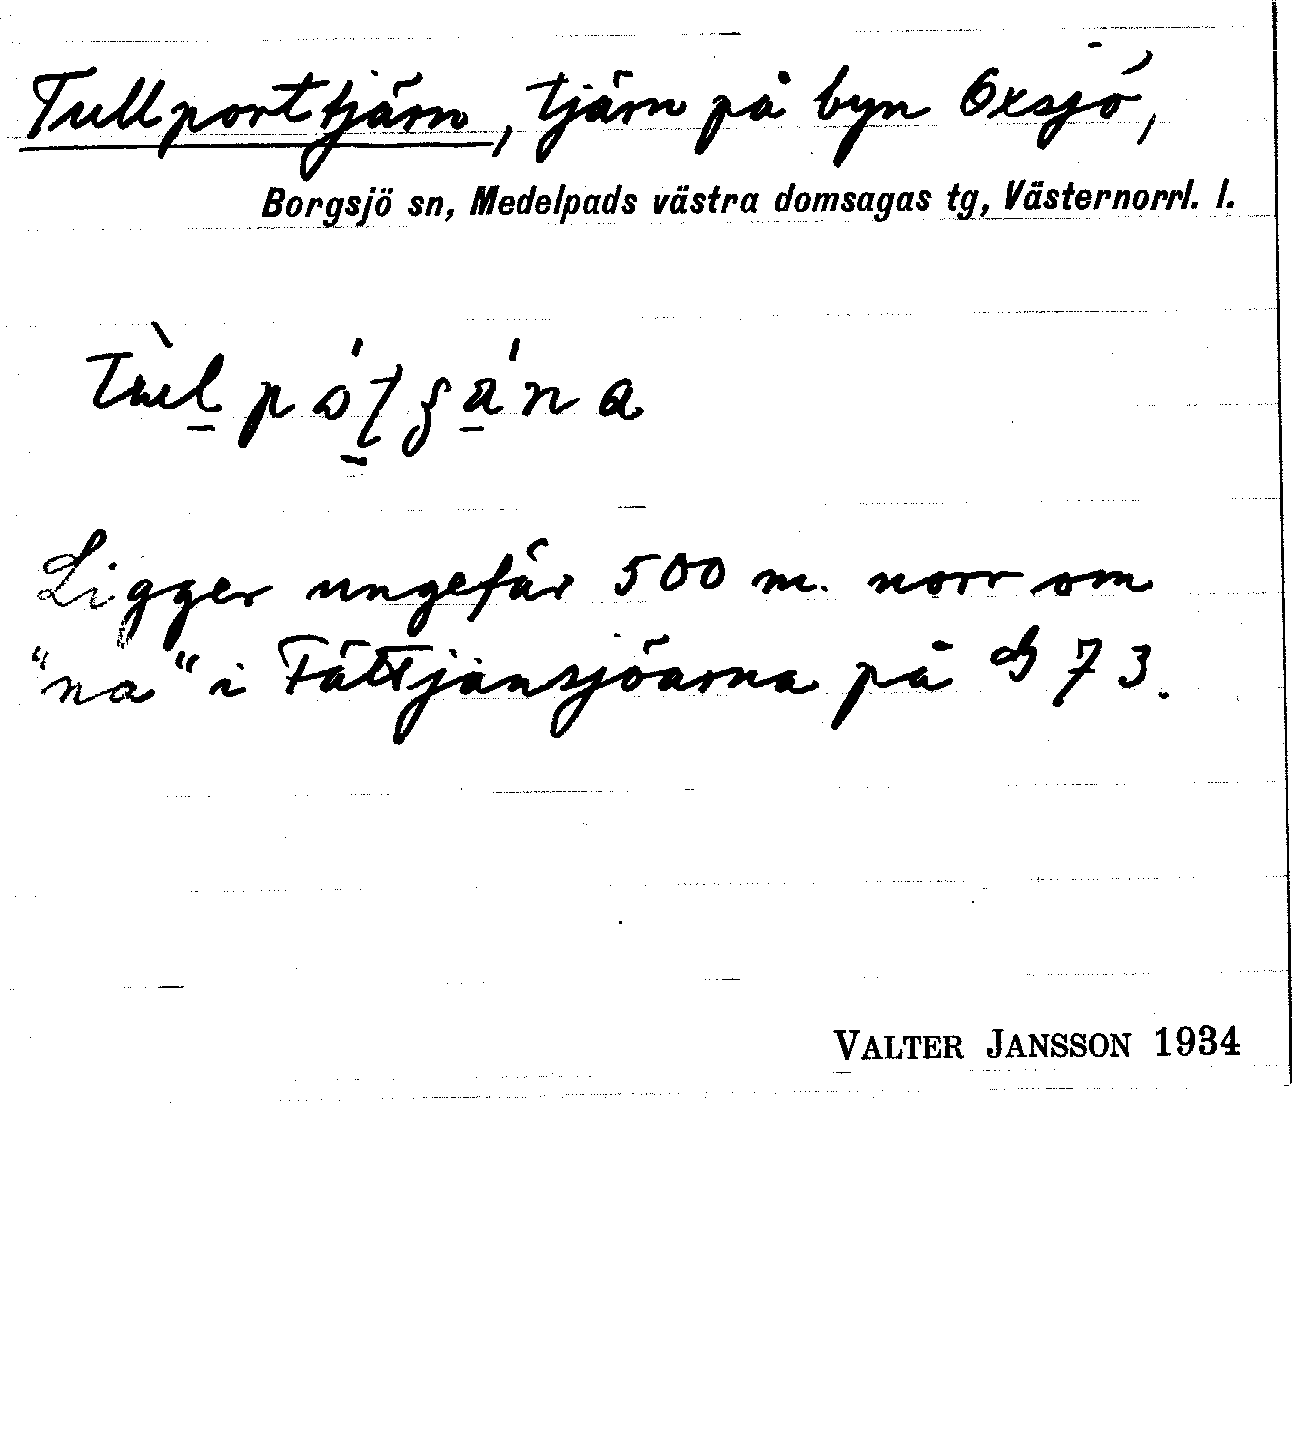 Tullporttjärn, tjärn på byn Oxsjö,
Borgsjö sn, Medelpads västra domsagas tg, Västernorrl. l.
Ligger ungefär 500 m. norr om
"na" i Fättjänsjöarna på 73.
VALTER JANSSON 1934